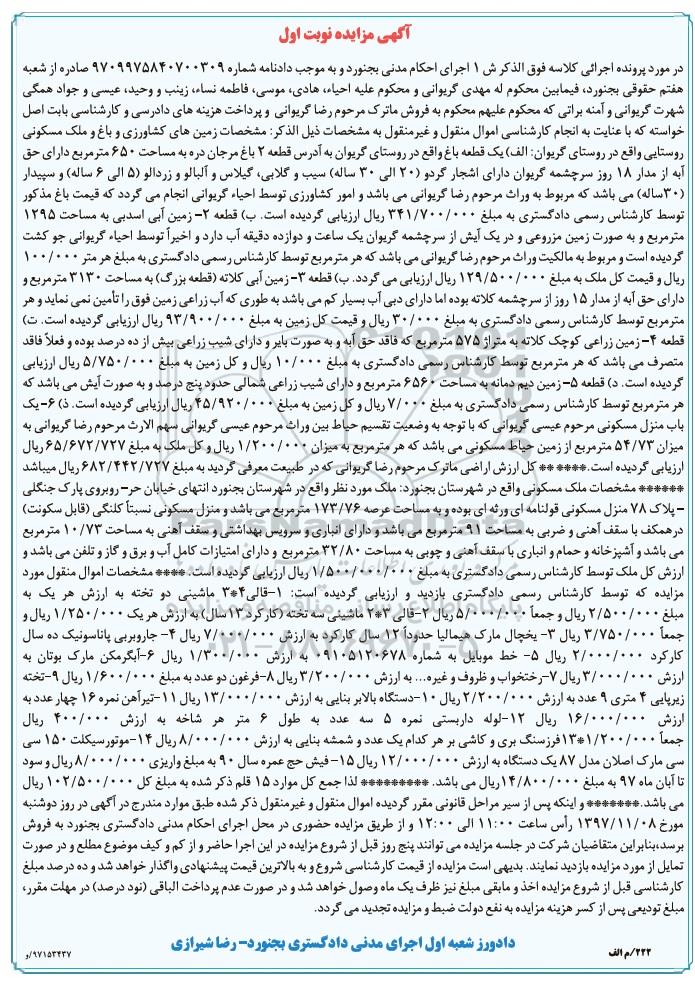 آگهی مزایده نوبت اول
در مورد پرونده اجرائی کلاسه فوق الذکر ش ۱ اجرای احکام مدنی بجنورد و به موجب دادنامه شماره ۹۷۰۹۹۷۵۸۴۰۷۰۰۳۰۹ صادره از شعبه
هفتم حقوقی بجنورد، فیمابین محکوم له مهدی گریوانی و محکوم علیه احیاء، هادی، موسی، فاطمه نساء، زینب و وحید، عیسی و جواد همگی
شهرت گریوانی و آمنه براتی که محکوم علیهم محکوم به فروش ماترک مرحوم رضا گریوانی و پرداخت هزینه های دادرسی و کارشناسی بابت اصل
خواسته که با عنایت به انجام کارشناسی اموال منقول و غیرمنقول به مشخصات ذیل الذکر: مشخصات زمین های کشاورزی و باغ و ملک مسکونی
روستایی واقع در روستای گریوان: الف) یک قطعه باغ واقع در روستای گریوان به آدرس قطعه ۲ باغ مرجان دره به مساحت ۶۵۰ مترمربع دارای حق
آبه از مدار ۱۸ روز سرچشمه گریوان دارای اشجار گردو (۲۰ الی ۳۰ ساله) سیب و گلابی، گیلاس و آلبالو و زردآلو (۵ الی ۶ ساله) و سپیدار
(۳۰ساله) می باشد که مربوط به وراث مرحوم رضا گریوانی می باشد و امور کشاورزی توسط احیاء گریوانی انجام می گردد که قیمت باغ مذکور
توسط کارشناس رسمی دادگستری به مبلغ ۳۴۱/۷۰۰/۰۰۰ ریال ارزیابی گردیده است. ب) قطعه ۲- زمین آبی اسدبی به مساحت ۱۲۹۵
مترمربع و به صورت زمین مزروعی و در یک آیش از سرچشمه گریوان یک ساعت و دوازده دقیقه آب دارد و اخیراً توسط احیاء گریوانی جو کشت
گردیده است و مربوط به مالکیت وراث مرحوم رضا گریوانی می باشد که هر مترمربع توسط کارشناس رسمی دادگستری به مبلغ هر متر ۱۰۰/۰۰۰
ریال و قیمت کل ملک به مبلغ ۱۲۹/۵۰۰/۰۰۰ ریال ارزیابی می گردد. ب) قطعه ۳- زمین آبی کلاته (قطعه بزرگ) به مساحت ۳۱۳۰ مترمربع و
دارای حق آبه از مدار ۱۵ روز از سرچشمه کلاته بوده اما دارای دبی آب بسیار کم می باشد به طوری که آب زراعی زمین فوق را تأمین نمی نماید و هر
مترمربع توسط کارشناس رسمی دادگستری به مبلغ ۳۰/۰۰۰ ریال و قیمت کل زمین به مبلغ ۹۳/۹۰۰/۰۰۰ ریال ارزیابی گردیده است. ت)
قطعه ۴- زمین زراعی کوچک کلاته به متراژ ۵۷۵ مترمربع که فاقد حق آبه و به صورت بایر و دارای شیب زراعی بیش از ده درصد بوده و فعلاً فاقد
متصرف می باشد که هر مترمربع توسط کارشناس رسمی دادگستری به مبلغ ۱۰/۰۰۰ ریال و کل زمین به مبلغ ۵/۷۵۰/۰۰۰ ریال ارزیابی
گردیده است. د) قطعه ۵- زمین دیم دمانه به مساحت ۶۵۶۰ مترمربع و دارای شیب زراعی شمالی حدود پنج درصد و به صورت آیش می باشد که
هر مترمربع توسط کارشناس رسمی دادگستری به مبلغ ۷/۰۰۰ ریال و کل زمین به مبلغ ۴۵/۹۲۰/۰۰۰ ریال ارزیابی گردیده است. ذ) ۶- یک
باب منزل مسکونی مرحوم عیسی گریوانی که با توجه به وضعیت تقسیم حیاط بین وراث مرحوم عیسی گریوانی سهم الارث مرحوم رضا گریوانی به
میزان ۵۴/۷۳ مترمربع از زمین حیاط مسکونی می باشد که هر مترمربع به میزان ۱/۲۰۰/۰۰۰ ریال و کل ملک به مبلغ ۶۵/۶۷۲/۷۲۷ ریال
ارزیابی گردیده است.****** کل ارزش اراضی ماترک مرحوم رضا گریوانی که در طبیعت معرفی گردید به مبلغ ۶۸۲/۴۴۲/۷۲۷ ریال میباشد
****** مشخصات ملک مسکونی واقع در شهرستان بجنورد: ملک مورد نظر واقع در شهرستان بجنورد انتهای خیابان حر- روبروی پارک جنگلی
- پلاک ۷۸ منزل مسکونی قولنامه ای ورثه ای بوده و به مساحت عرصه ۱۷۳/۷۶ مترمربع می باشد و منزل مسکونی نسبتاً کلنگی (قابل سکونت)
درهمکف با سقف آهنی و ضربی به مساحت ۹۱ مترمربع می باشد و دارای انباری و سرویس بهداشتی و سقف آهنی به مساحت ۱۰/۷۳ مترمربع
می باشد و آشپزخانه و حمام و انباری با سقف آهنی و چوبی به مساحت ۳۲/۸۰ مترمربع و دارای امتیازات کامل آب و برق و گاز و تلفن می باشد و
ارزش کل ملک توسط کارشناس رسمی دادگستری به مبلغ ۱/۵۰۰/۰۰۰/۰۰۰ ریال ارزیابی گردیده است. **** مشخصات اموال منقول مورد
مزایده که توسط کارشناس رسمی دادگستری بازدید و ارزیابی گردیده است: ۱-قالی۴*۳ ماشینی دو تخته به ارزش هر یک به
مبلغ ۲/۵۰۰/۰۰۰ ریال و جمعاً ۵/۰۰۰/۰۰۰ ریال ۲-قالی ۳*۲ ماشینی سه تخته (کارکرد ۱۳سال) به ارزش هر یک ۱/۲۵۰/۰۰۰ ریال و
جمعاً ۳/۷۵۰/۰۰۰ ریال ۳- یخچال مارک هیمالیا حدوداً ۱۲ سال کارکرد به ارزش ۷/۰۰۰/۰۰۰ ریال ۴- جاروبرقی پاناسونیک ده سال
کارکرد ۲/۰۰۰/۰۰۰ ریال ۵- خط موبایل به شماره ۰۹۱۰۵۱۳۰۶۷۸ به ارزش ۱/۳۰۰/۰۰۰ ریال ۶-آبگرمکن مارک بوتان به
ارزش ۳/۰۰۰/۰۰۰ ریال ۷-رختخواب و ظروف و غیره... به ارزش ۳/۲۰۰/۰۰۰ ریال ۸-فرغون دو عدد به مبلغ ۱/۶۰۰/۰۰۰ ریال ۹-تخته
زیرپایی ۴ متری ۹ عدد به ارزش ۲/۲۰۰/۰۰۰ ریال ۱۰-دستگاه بالابر بنایی به ارزش ۱۳/۰۰۰/۰۰۰ ریال ۱۱-تیرآهن نمره ۱۶ چهار عدد به
ارزش ۱۶/۰۰۰/۰۰۰ ریال ۱۲-لوله داربستی نمره ۵ سه عدد به طول ۶ متر هر شاخه به ارزش ۴۰۰/۰۰۰ ریال
جمعاً ۱/۲۰۰/۰۰۰*۱۳فرزسنگ بری و کاشی بر هر کدام یک عدد و شمشه بنایی به ارزش ۸/۰۰۰/۰۰۰ ریال ۱۴-موتورسیکلت ۱۵۰ سی
سی مارک اصلان مدل ۸۷ یک دستگاه به ارزش ۱۲/۰۰۰/۰۰۰ ریال ۱۵- فیش حج عمره سال ۹۰ به مبلغ واریزی ۸/۰۰۰/۰۰۰ ریال و سود
تا آبان ماه ۹۷ به مبلغ ۱۴/۸۰۰/۰۰۰ریال می باشد. ********* لذا جمع کل موارد ۱۵ قلم ذکر شده به مبلغ کل ۱۰۲/۵۰۰/۰۰۰ ریال
می باشد.******* و اینکه پس از سیر مراحل قانونی مقرر گردیده اموال منقول و غیرمنقول ذکر شده طبق موارد مندرج در آگهی در روز دوشنبه
مورخ ۱۳۹۷/۱۱/۰۸ رأس ساعت ۱۱:۰۰ الی ۱۲:۰۰ و از طریق مزایده حضوری در محل اجرای احکام مدنی دادگستری بجنورد به فروش
برسد،بنابراین متقاضیان شرکت در جلسه مزایده می توانند پنج روز قبل از شروع مزایده در این اجرا حاضر و از کم و کیف موضوع مطلع و در صورت
تمایل از مورد مزایده بازدید نمایند. بدیهی است مزایده از قیمت کارشناسی شروع و به بالاترین قیمت پیشنهادی واگذار خواهد شد و ده درصد مبلغ
کارشناسی قبل از شروع مزایده اخذ و مابقی مبلغ نیز ظرف یک ماه وصول خواهد شد و در صورت عدم پرداخت الباقی (نود درصد) در مهلت مقرر،
مبلغ تودیعی پس از کسر هزینه مزایده به نفع دولت ضبط و مزایده تجدید می گردد.
دادورز شعبه اول اجرای مدنی دادگستری بجنورد- رضا شیرازی
۲۲۲/م الف
۹۷۱۵۳۴۳۷/و